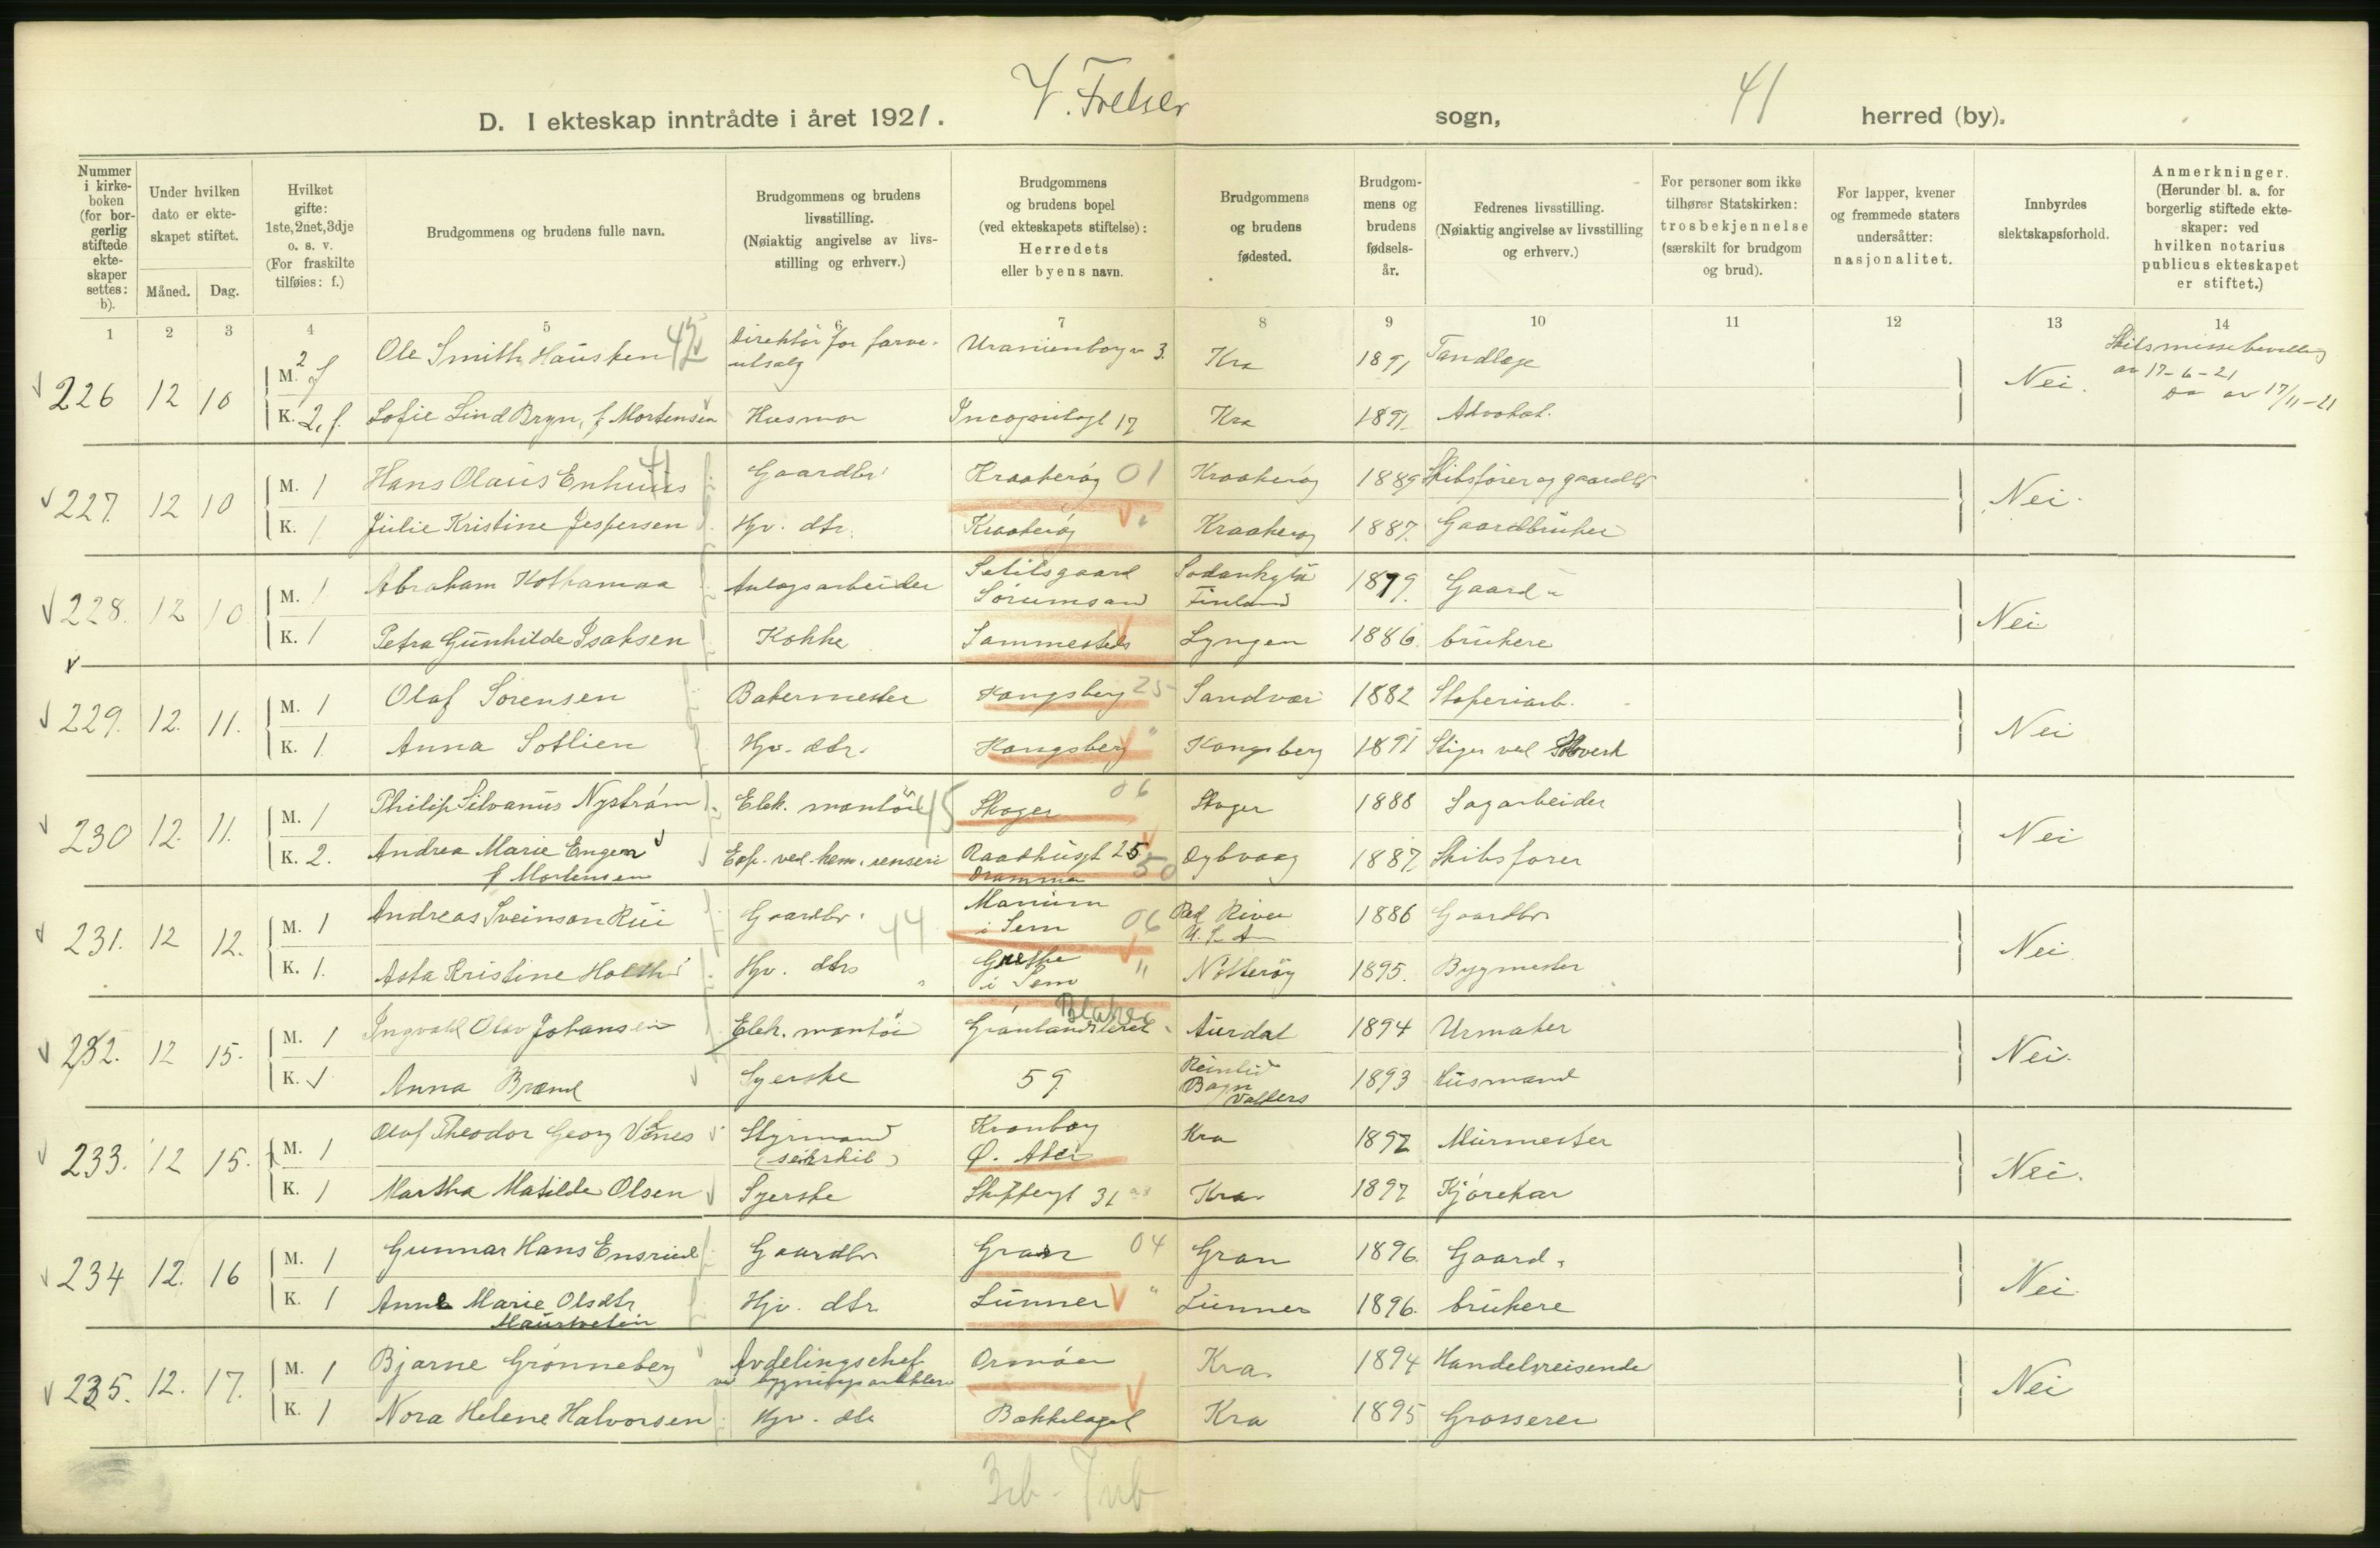 D. I ekteskap inntrådte i året 1921. V. Frelser sogn, 41 herred (by).
Nummer i kirkeboken (for borgerlig stiftede ekteskaper settes: b).
Under hvilken dato er ekteskapet stiftet.
Måned. Dag.
Hvilket gifte: 1ste, 2net, 3dje o. s. v. (For fraskilte tilføies: f.)
Brudgommens og brudens fulle navn.
Brudgommens og brudens livsstilling. (Nøiaktig angivelse av livsstilling og erhverv.)
Brudgommens og brudens bopel (ved ekteskapets stiftelse): Herredets eller byens navn.
Brudgommens og brudens fødested.
Brudgommens og brudens fødselsår.
Fedrenes livsstilling. (Nøiaktig angivelse av livsstilling og erhverv.)
For personer som ikke tilhører Statskirken: trosbekjennelse (særskilt for brudgom og brud).
For lapper, kvener og fremmede staters undersåtter: nasjonalitet.
Innbyrdes slektskapsforhold.
Anmerkninger. (Herunder bl. a. for borgerlig stiftede ekteskaper: ved hvilken notarius publicus ekteskapet er stiftet.)
1 2 3 4 5 6 7 8 9 10 11 12 13 14
226 12 10 M. 2 f Ole Smith Hausken 42 Direktør for farveutsalg Uranienborgv 3. Kra 1891 Tandlæge Nei. Skilsmissebevilling av 17-6-21
K. 2. f. Sofie Lind Bryn, f Mortensen Husmor Incognitogt 17 Kra 1891 Advokat. Do av 17/11-21
227. 12 10 M. 1 Hans Olaus Enhuus 41 Gaardbr Kraakerøy 01 Kraakerøy 1889 Skibsfører og gaardbr Nei.
K. 1 Julie Kristine Jespersen Hjv. dtr. Kraakerøy " Kraakerøy 1887. Gaardbruker
228. 12 10 M. 1 Abraham Kothamaa Anlagsarbeider Sørumsand Sodankylä Finland 1899. Gaard- Nei.
K. 1 Petra Gunhilde Isaksen Kokke Sammesteds Lyngen 1886. brukere
229. 12. 11. M. 1 Olaf Sørensen Bakermester Kongsberg 25 Sandvær 1882 Stoperiarb. Nei
K. 1. Anna Sotlien Hjv. dtr. Kongsberg " Kongsberg 1891 Stiger ved Sølvverk
230 12. 11. M. 1 Philip Silvanus Nystrøm Elek. montør 45 Skoger 06 Skoger 1888 Sagarbeider Nei
K. 2. Andrea Marie Engen f Mortensen Exp. ved kem. renseri Raadhusgt 25. Drammen 50 1887. Skibsfører
231. 12 12. M. 1 Andreas Sveinson Rui Gaardbr. 44 i Sem 06 Red River U. S. A 1886 Gaardbr Nei
K. 1. Asta Kristine Holth Hjv. dtr i Sem " Nøtterøy 1895. Bygmester
232. 12 15. M. 1 Ingvald Olav Johansen Elek. montør Grønlandsleret Aurdal 1894 Urmaker Nei.
K. 1 Anna Brænd Syerske 59. Reinlid Bagn Valdres 1893 Husmand
233. 12 15. M. 1 Olaf Theodor Georg Vånes Styrmand Kronborg Ø. Aker Kra 1892 Murmester Nei.
K. 1 Martha Matilde Olsen Syerske Skippergt 31 Kra. 1897 Kjørekar
234 12. 16 M. 1 Gunnar Hans Ensrud Gaardbr Gran 04 Gran 1896. Gaard- Nei.
K. 1 Anne Marie Olsdtr Hjv. dtr Lunner " Lunner 1896. brukere
235. 12. 17. M. 1 Bjarne Grønneberg Avdelingschef Ormøen Kra. 1894 Handelsreisende Nei
K. 1 Nora Helene Halvorsen Hjv. dtr Bækkelaget Kra 1895 Grosserer